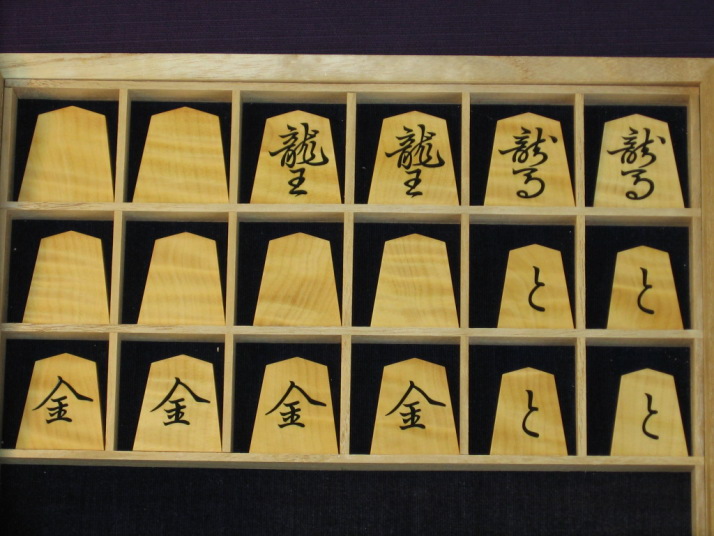 龍王 龍王 龍馬 龍馬
と と
金 金 金 金 と と